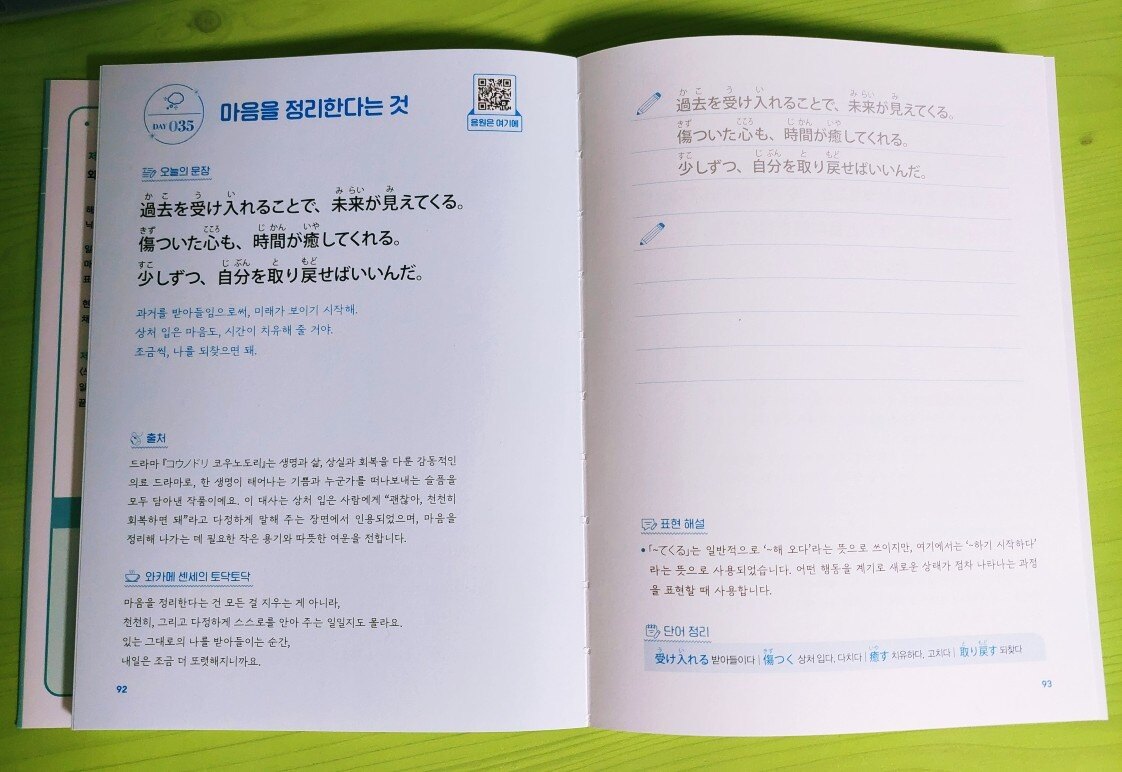 DAY 035
마음을 정리한다는 것
음원은 여기에
오늘의 문장
過去を受け入れることで、未来が見えてくる。
傷ついた心も、時間が癒してくれる。
少しずつ、自分を取り戻せばいいんだ。
과거를 받아들임으로써, 미래가 보이기 시작해.
상처 입은 마음도, 시간이 치유해 줄 거야.
조금씩, 나를 되찾으면 돼.
출처
드라마 『コウノドリ 코우노도리』는 생명과 삶, 상실과 회복을 다룬 감동적인
의료 드라마로, 한 생명이 태어나는 기쁨과 누군가를 떠나보내는 슬픔을
모두 담아낸 작품이에요. 이 대사는 상처 입은 사람에게 “괜찮아, 천천히
회복하면 돼”라고 다정하게 말해 주는 장면에서 인용되었으며, 마음을
정리해 나가는 데 필요한 작은 용기와 따뜻한 여운을 전합니다.
와카메 센세의 토닥토닥
마음을 정리한다는 건 모든 걸 지우는 게 아니라,
천천히, 그리고 다정하게 스스로를 안아 주는 일일지도 몰라요.
있는 그대로의 나를 받아들이는 순간,
내일은 조금 더 또렷해지니까요.
92
過去を受け入れることで、未来が見えてくる。
傷ついた心も、時間が癒してくれる。
少しずつ、自分を取り戻せばいいんだ。
표현 해설
•「~てくる」는 일반적으로 ‘~해 오다’라는 뜻으로 쓰이지만, 여기에서는 ‘~하기 시작하다’
라는 뜻으로 사용되었습니다. 어떤 행동을 계기로 새로운 상태가 점차 나타나는 과정
을 표현할 때 사용합니다.
단어 정리
受け入れる 받아들이다 | 傷つく 상처 입다, 다치다 | 癒す 치유하다, 고치다 | 取り戻す 되찾다
93